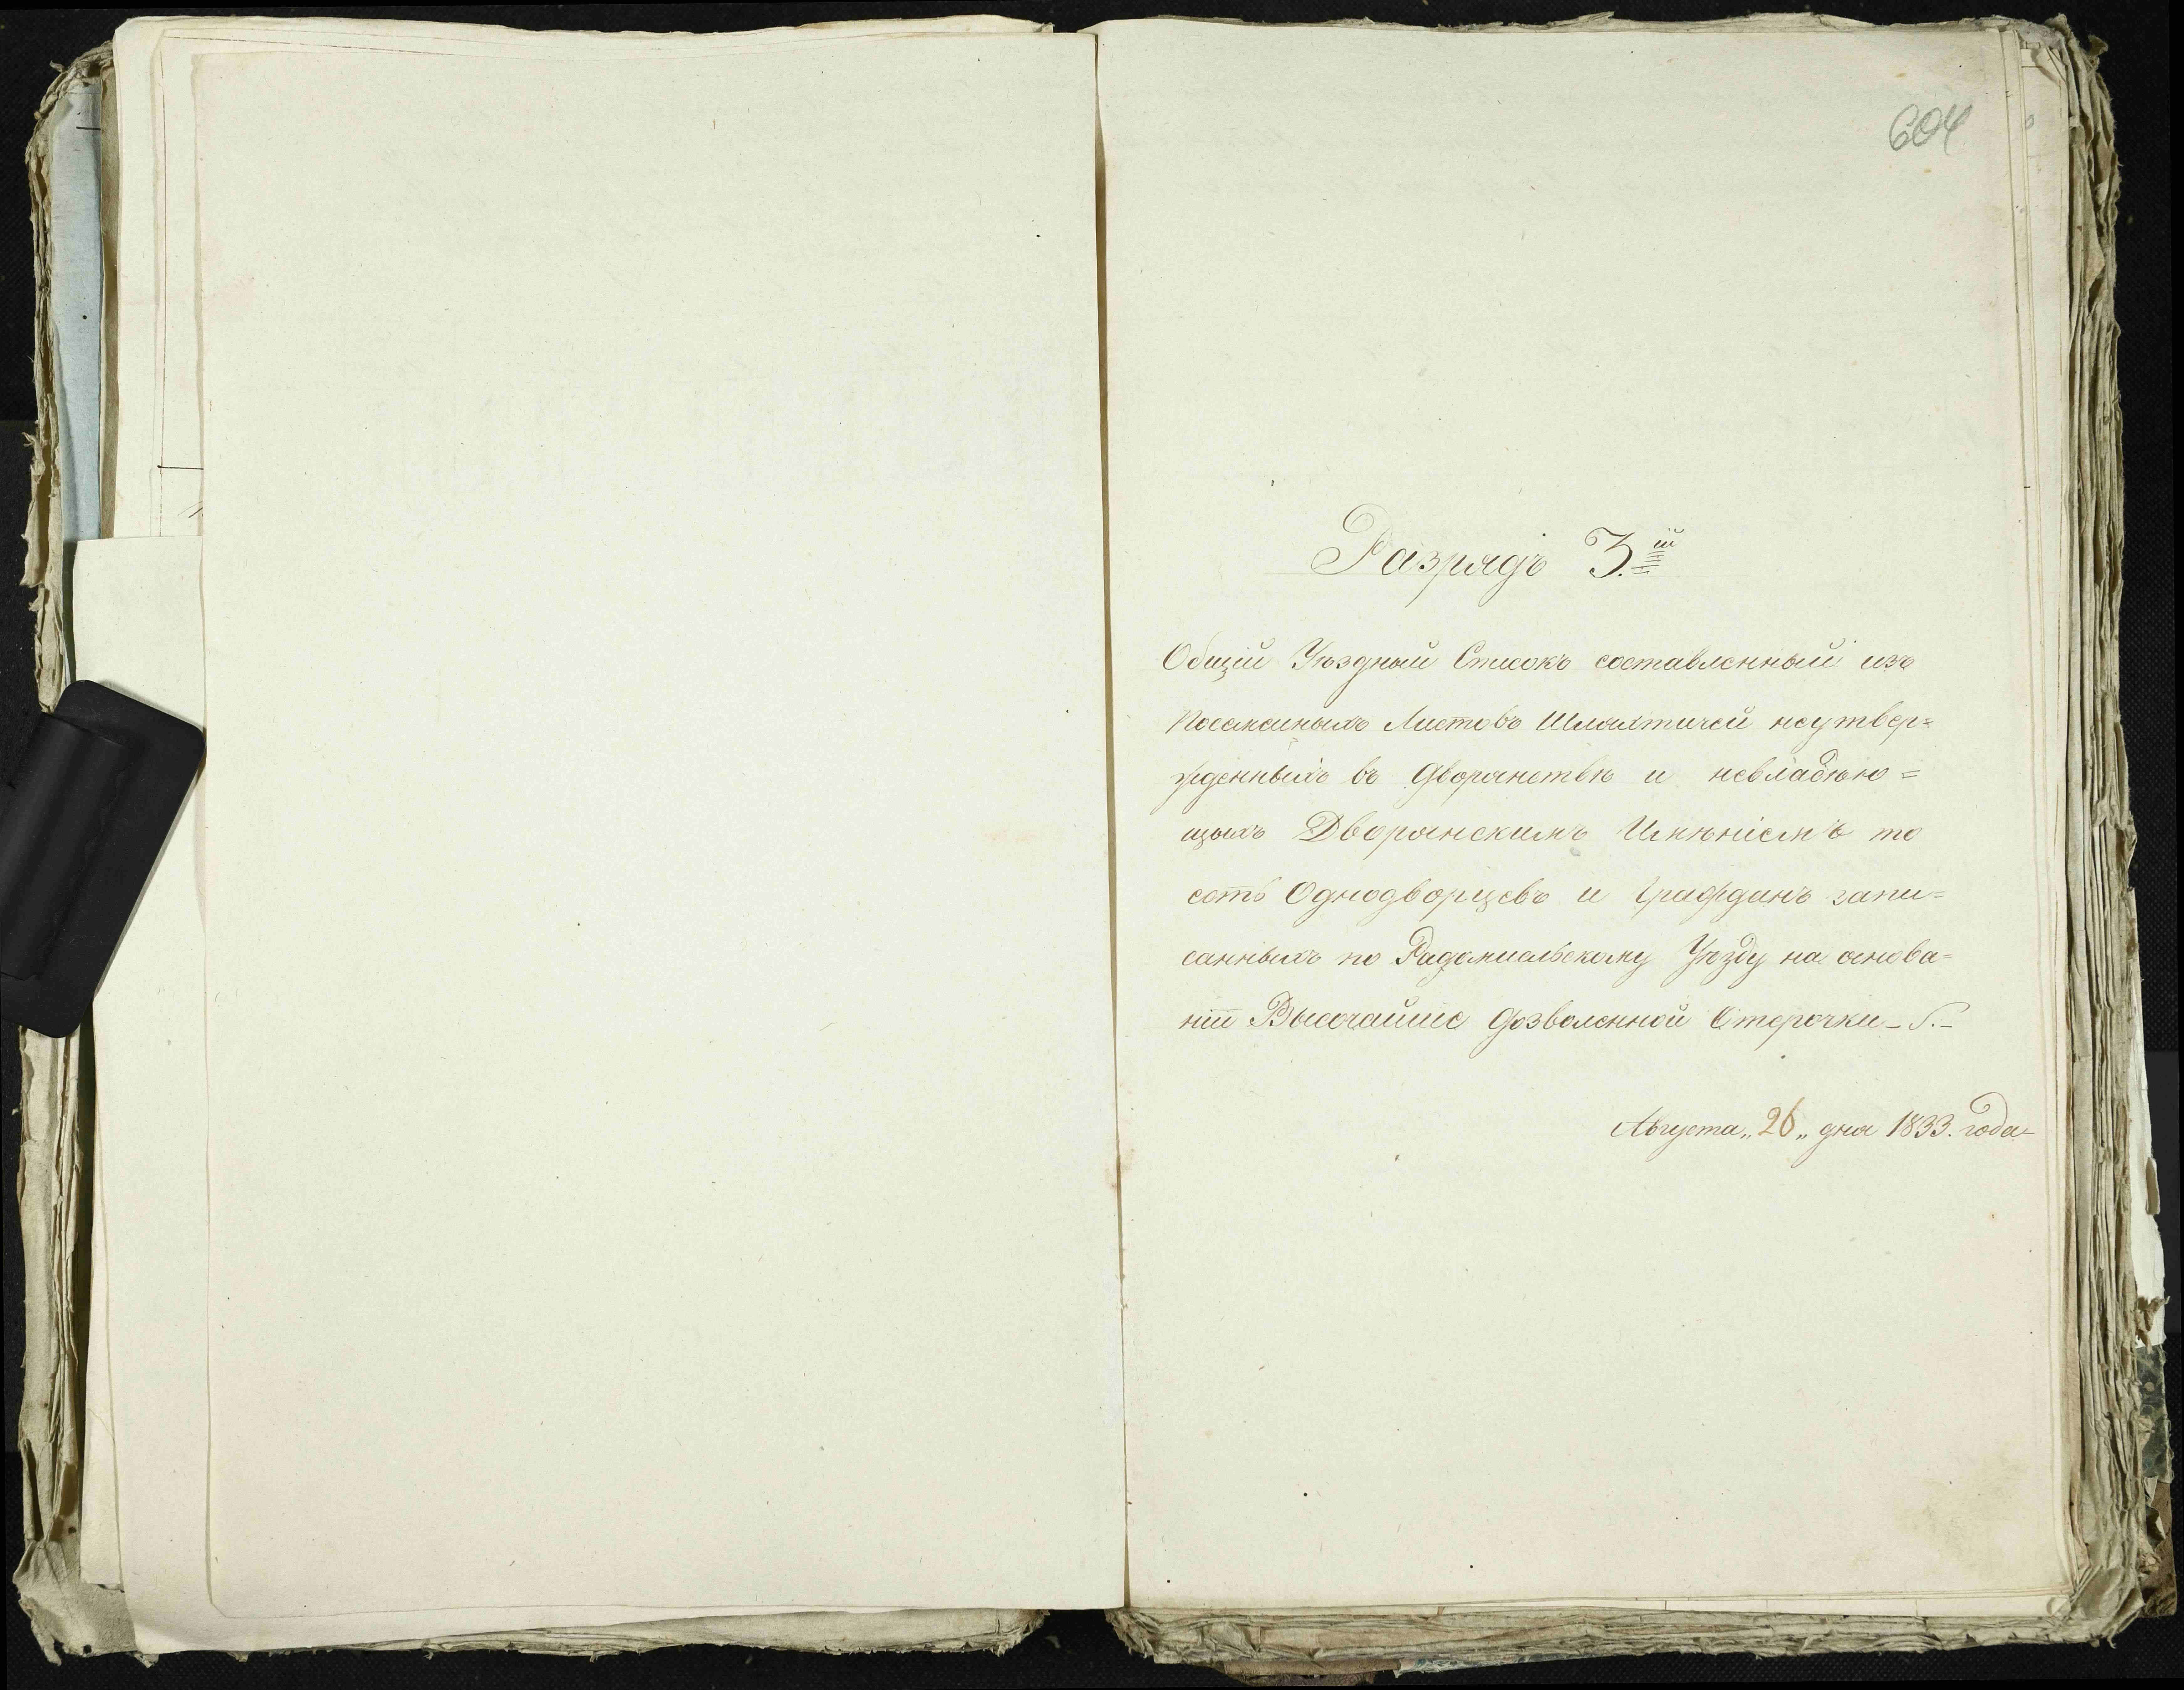 604
Разрядъ 3.ій
Общій Уѣздный Списокъ составленный изъ
Посемейныхъ Листовъ Шляхтичей неутвер=
жденныхъ въ Дворянствѣ и невладѣю=
щыхъ Дворянскимъ Имѣніемъ то
есть Однодворцевъ и Граждань запи=
санныхъ по Радомысльскому Уѣзду на основа=
ніи Высочайше дозволенной Отсрочки
Августа „26„ дня 1833. года